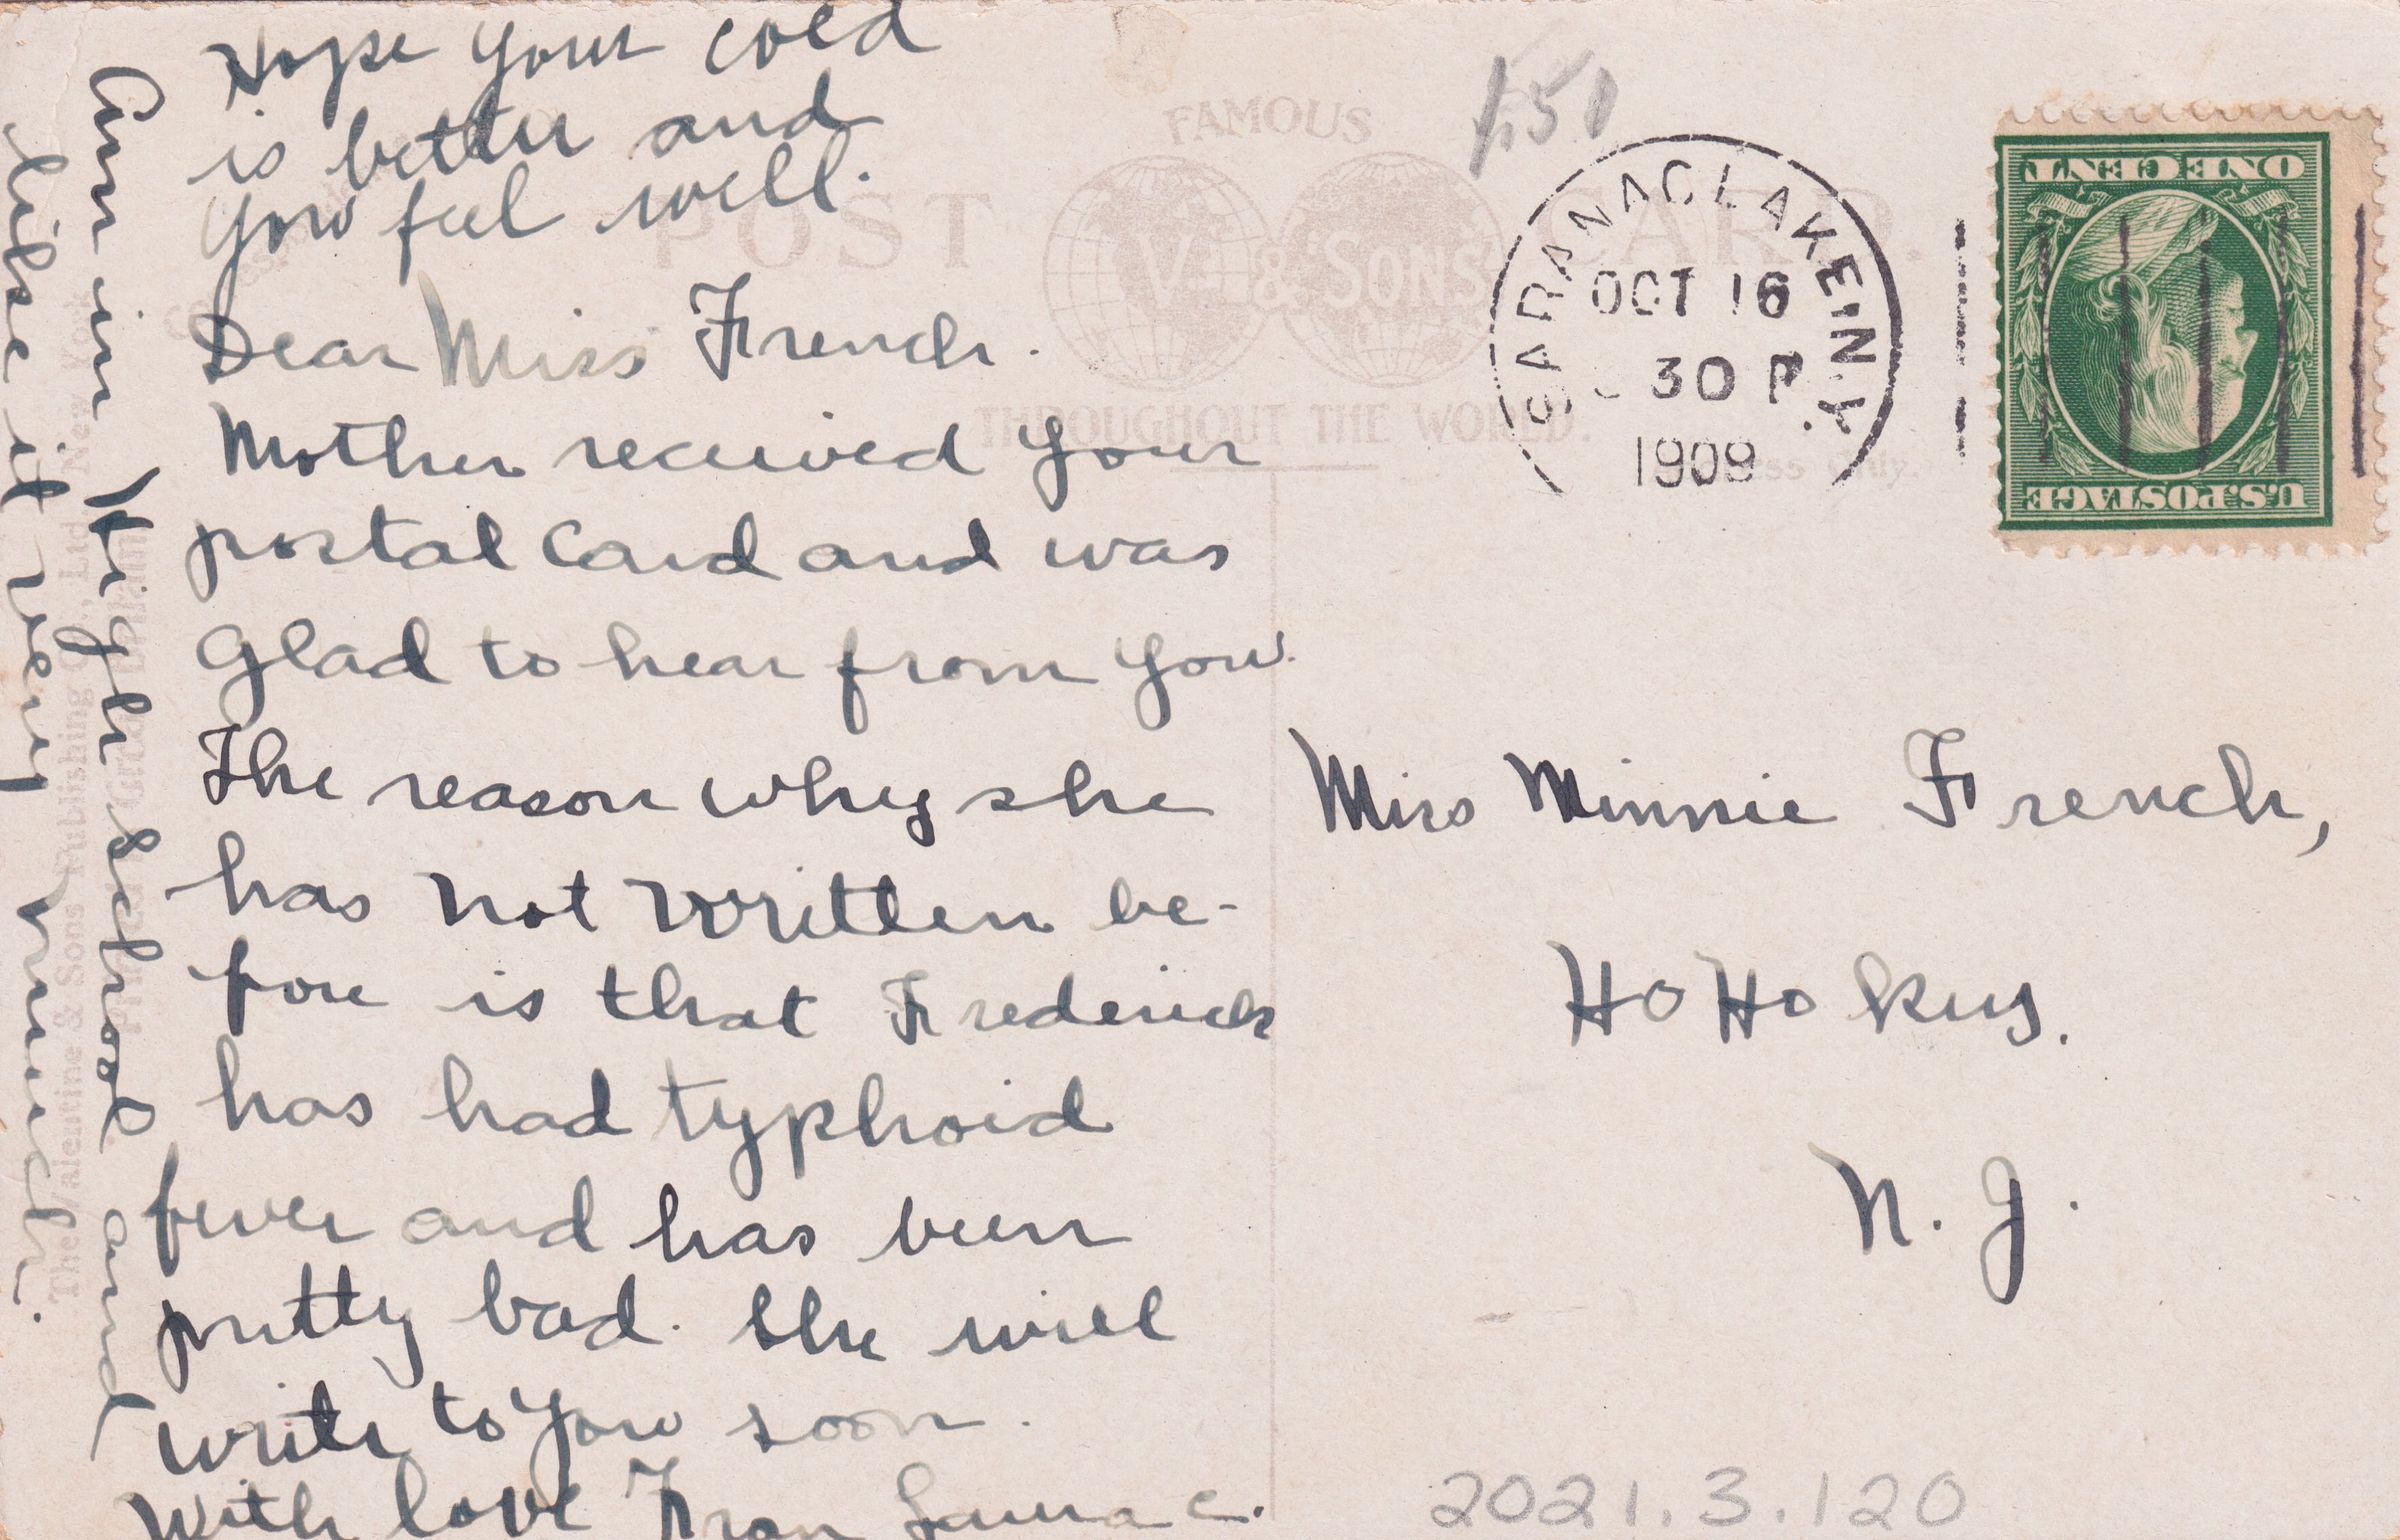 Hope your cold
is better and
you feel well.
Dear Miss French.
Mother received your
postal card and was
glad to hear from you.
The reason why she
has not written be-
fore is that Frederick
has had typhoid
fever and has been
pretty bad. She will
write to you soon.
With love from Laura C.
Am in High School and
like it very much.
FAMOUS
POST CARD.
V & SONS
THROUGHOUT THE WORLD.
The Valentine & Sons Publishing Co., Ltd. New York
1.50
SARANAC LAKE, N.Y.
OCT 16
30 P
1909
ONE CENT
U.S. POSTAGE
Miss Minnie French,
Ho Ho kus.
N. J.
2021.3.120